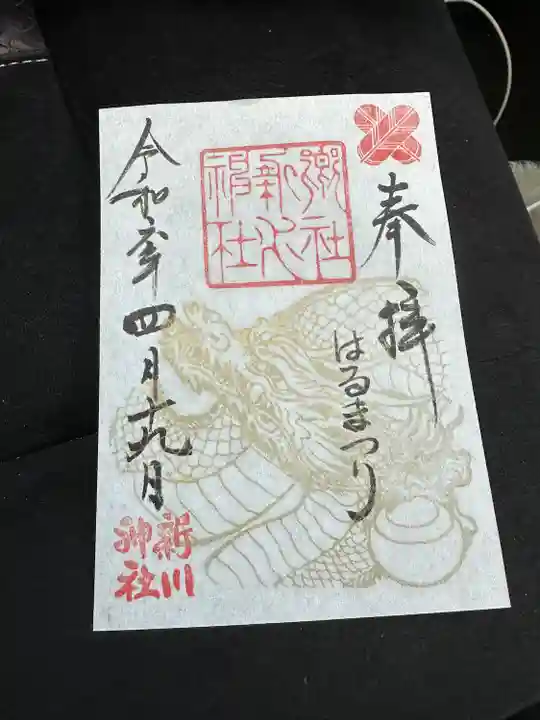 奉拝
はるまつり
郷社
新川
神社
令和六年四月十九日
新川
神社